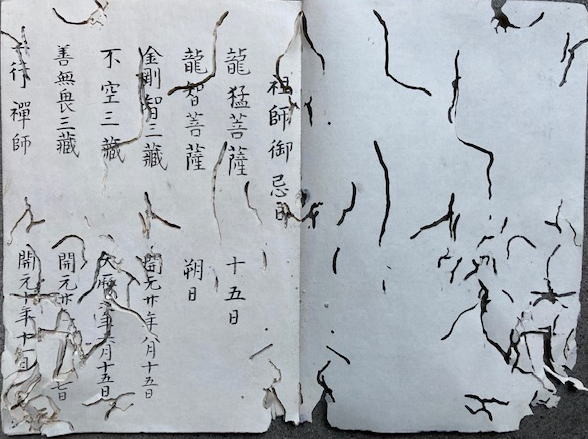 祖師御忌日
龍猛菩薩 十五日
龍智菩薩 朔日
金剛智三藏 開元廿年八月十五日
不空三藏 大曆 年六月十五日
善無畏三藏 開元廿 七日
一行禪師 開元 年十一